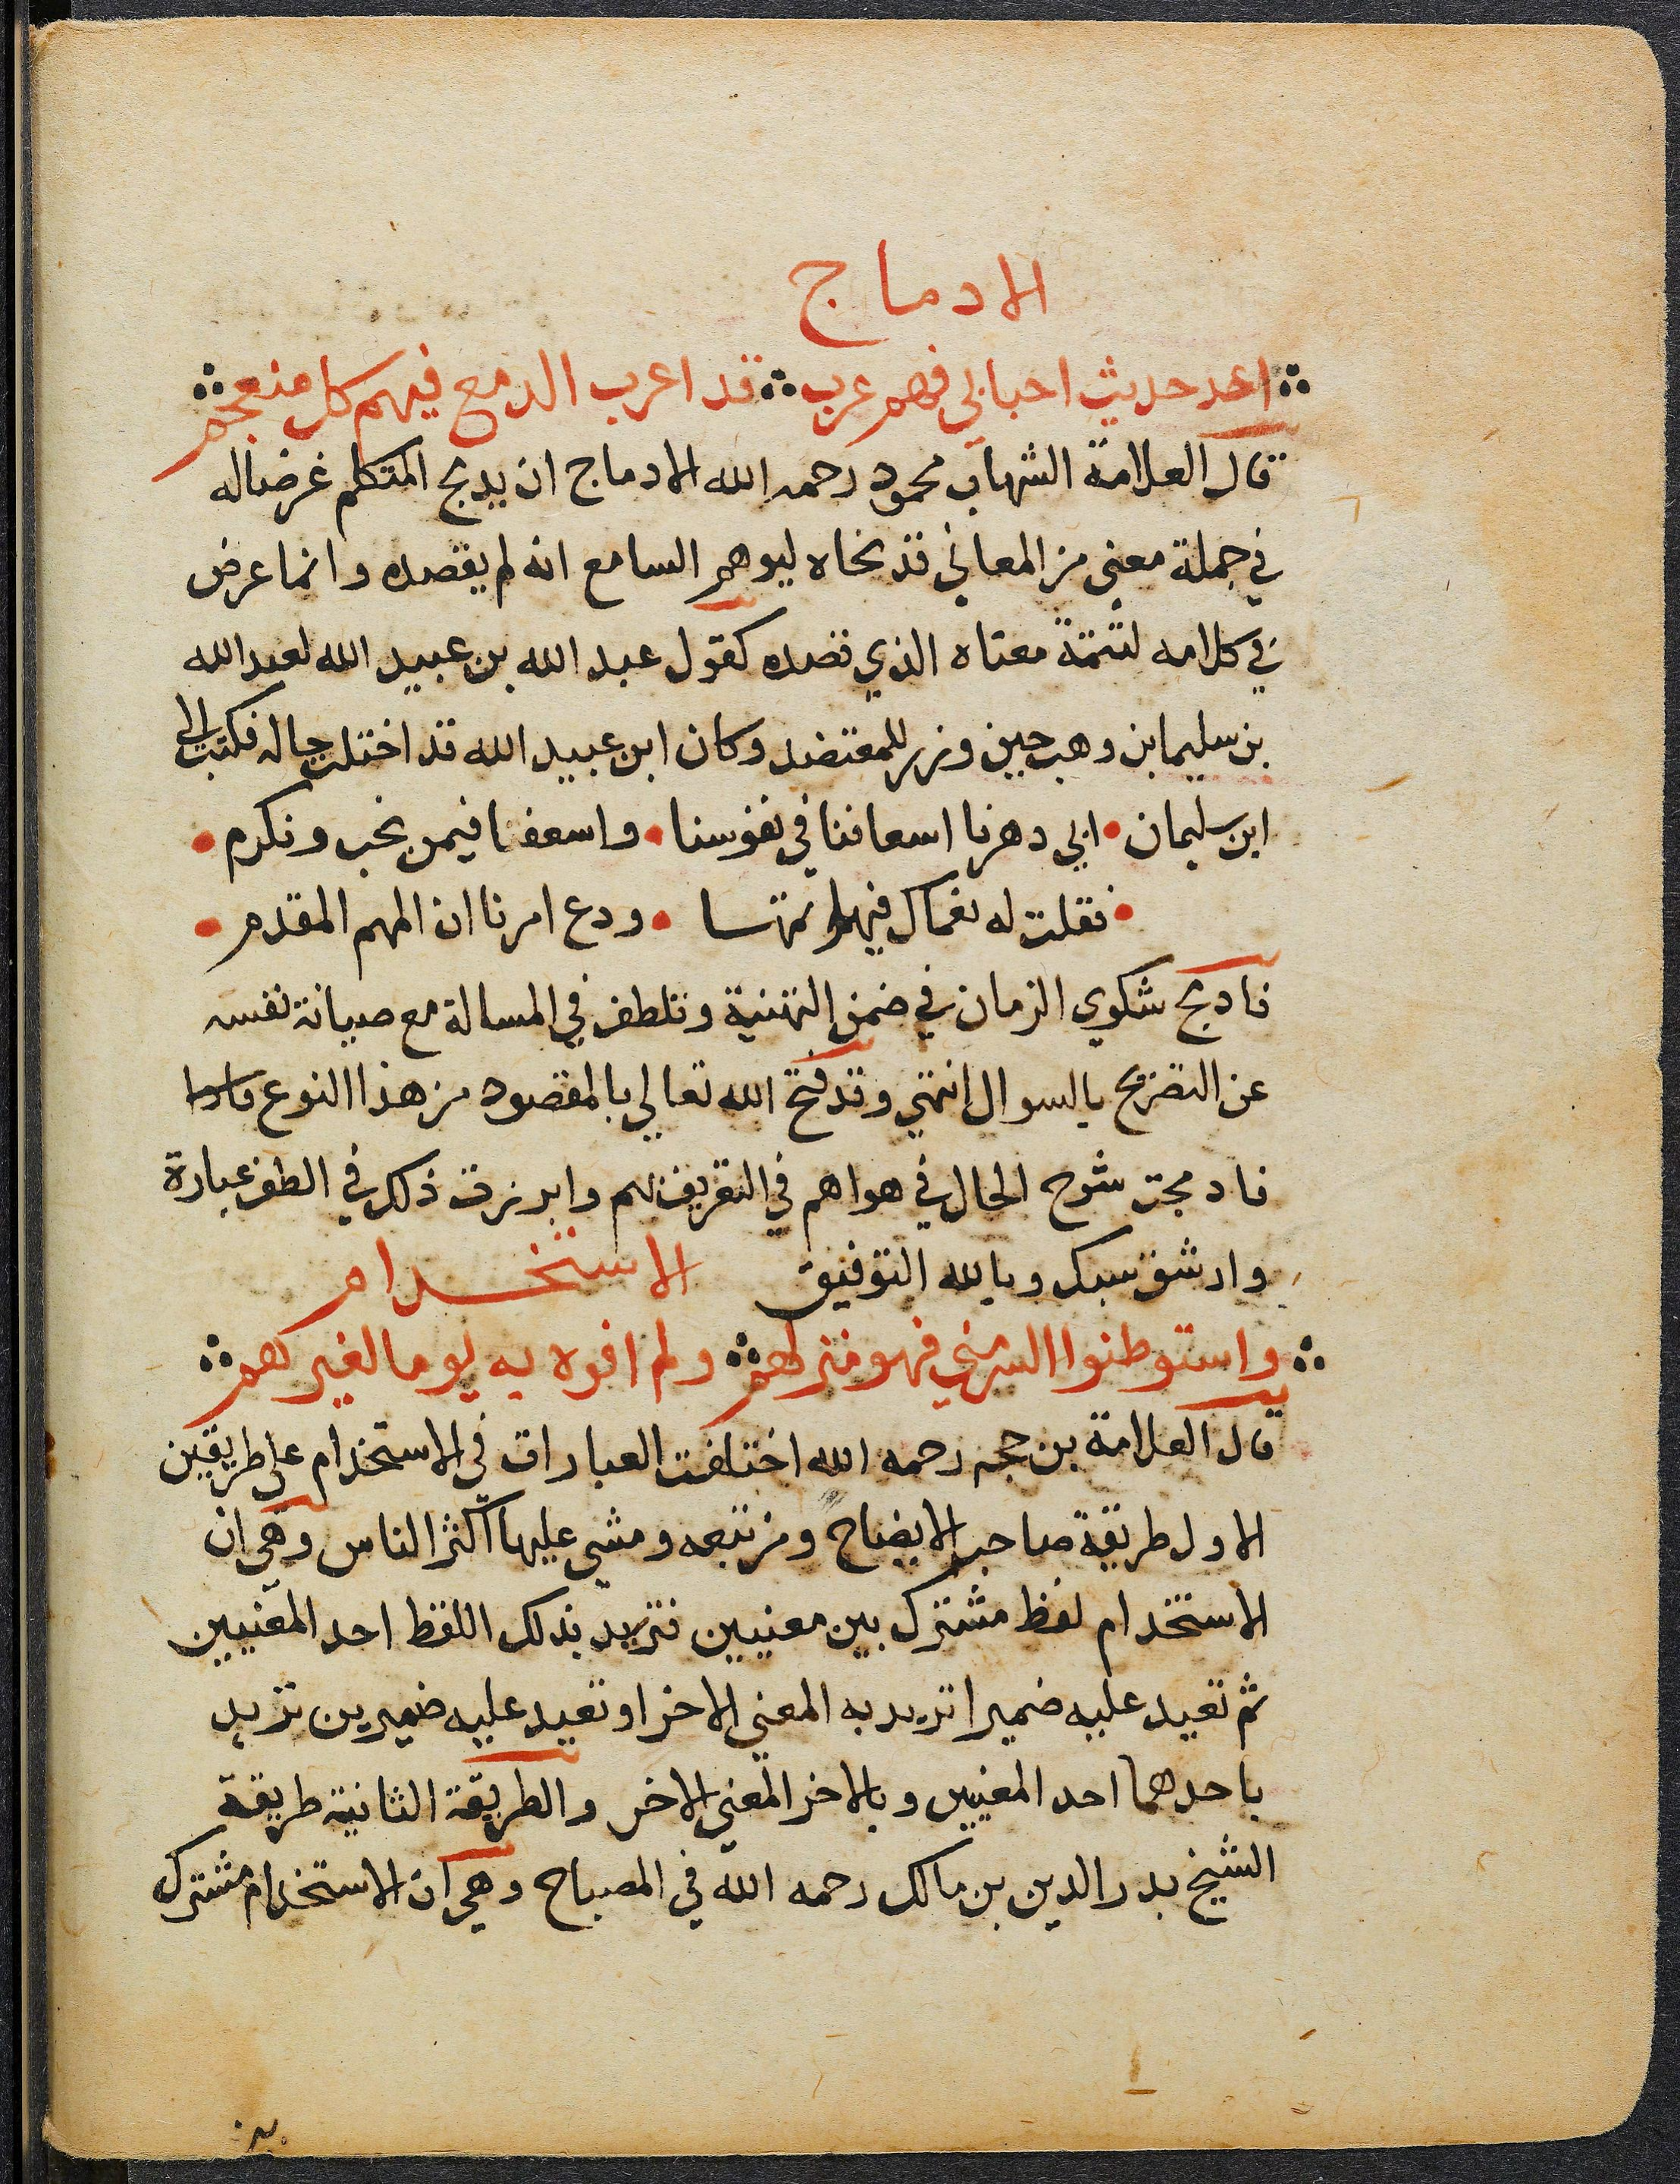 الادماج
اعد حديث احبابي فهم عرب قد اعرب الدمع فيهم كل منعجم
قال العلامة الشهاب محمود رحمه الله الادماج ان يدمج المتكلم غرضا له
في جملة معنى من المعاني قد نحاه ليوهم السامع انه لم يقصده وانما عرض
في كلامه لتتمة معناه الذي قصده كقول عبد الله بن عبيد الله لعبد الله
بن سليمابن وهب حين وزر للمعتضد وكان ابن عبيد الله قد اختلت حاله فكتب الى
ابن سليمان • ابي دهرنا اسعافنا في نفوسنا • واسعفنا فيمن نحب ونكرم •
• فقلت له نعماك فيهم اتمها • ودع امرنا ان المهم المقدم •
فادمج شكوي الزمان في ضمن التهنية وتلطف في المسالة مع صيانة نفسه
عن التصريح بالسوال انتهي وقد فتح الله تعالي بالمقصود من هذا النوع
فادمجت شرح الحال في هواهم في التعريف لهم وابرزت ذلك في الطف عبارة
وارشق سبك وبالله التوفيق الاستخدام
واستوطنوا السر مني فهو منزلهم ولم افوه به يوما لغيرهم
قال العلامة بن حجه رحمه الله اختلفت العبارات في الاستخدام على طريقين
الاول طريقة صاحب الايضاح ومن تبعه ومشي عليها اكثر الناس وهي ان
الاستخدام لفظ مشترك بين معنيين فتريد بذلك اللفظ احد المعنيين
ثم تعيد عليه ضميرا تريد به المعني الاخر او تعيد عليه ضميرين تريد
باحدهما احد المعنيين وبالاخر المعني الاخر والطريقة الثانية طريقة
الشيخ بدر الدين بن مالك رحمه الله في المصباح وهي ان الاستخدام مشترك
بين